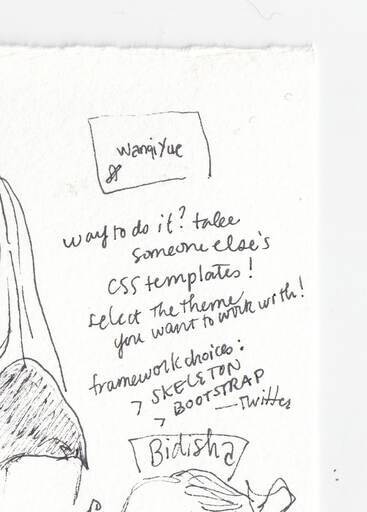 WangiYue
way to do it? take
someone else's
CSS templates!
select the theme
you want to work with!
framework choices:
> SKELETON
> BOOTSTRAP
— Twitter
Bidisha